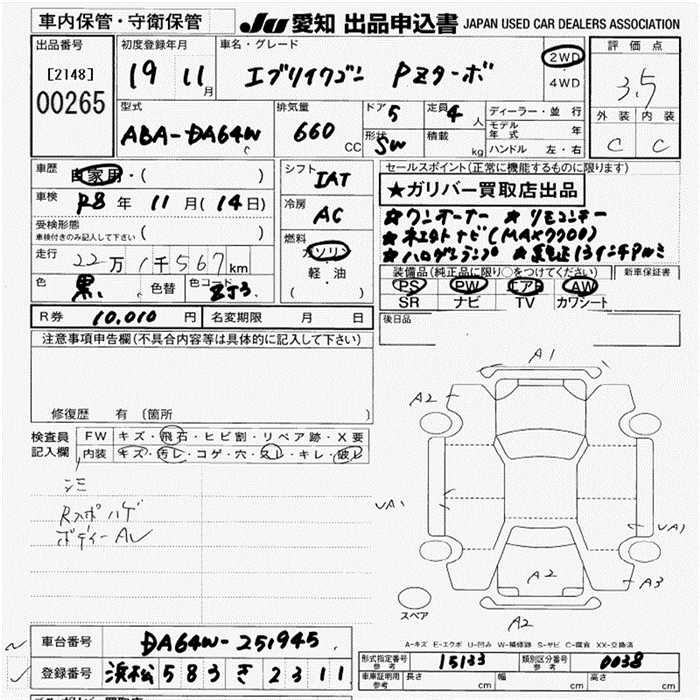 車内保管・守衛保管
JU 愛知 出品申込書 JAPAN USED CAR DEALERS ASSOCIATION
出品番号 初度登録年月 車名・グレード 評価点
[2148] 19 11月 エブリイワゴン PZターボ 2WD・4WD 3.5
00265
型式 排気量 ドア 5 定員 4人 ディーラー・並行 外装 内装
ABA-DA64W 660CC 形状 SW 積載 kg モデル年式 年 C C
ハンドル 左・右
車歴 自家用・( ) シフト IAT セールスポイント(正常に機能するものに限り)
★ガリバー買取店出品
車検 R8年 11月(14日) 冷房 AC
★ワンオーナー ★リモコンキー
受検形態 ( )
車検付きのみ記入して下さい
燃料 ガソリン
★ネエタトナビ(MAX7700)
走行 22万1千567km 軽・油
★ハロゲンランプ ★純正13インチアルミ
色 黒 色替 色コード ZJ3 ( )
装備品(純正品に限り○をつけてください) 新車保証書
PS PW エアB AW
SR ナビ TV カワシート
R券 10,010円 名変期限 月 日 後日品
注意事項申告欄(不具合内容等は具体的に記入して下さい)
修復歴 有 〔箇所 〕
検査員記入欄 FW キズ・飛石・ヒビ割・リペア跡・X要
内装 キズ・汚レ・コゲ・穴・スレ・キレ・破レ
Rスポハゲ
ボディーAU
A1
A2
UA1
UA1
A2
A3
A2
スペア
A-キズ E-エクボ U-凹み W-補修跡 S-サビ C-腐食 XX-交換済
車台番号 DA64W-251945
登録番号 浜松 583 き 2311
形式指定番号 参考 15133 類別区分番号 参考 0038
車庫証明用 参考 長さ cm 幅 cm 高さ cm